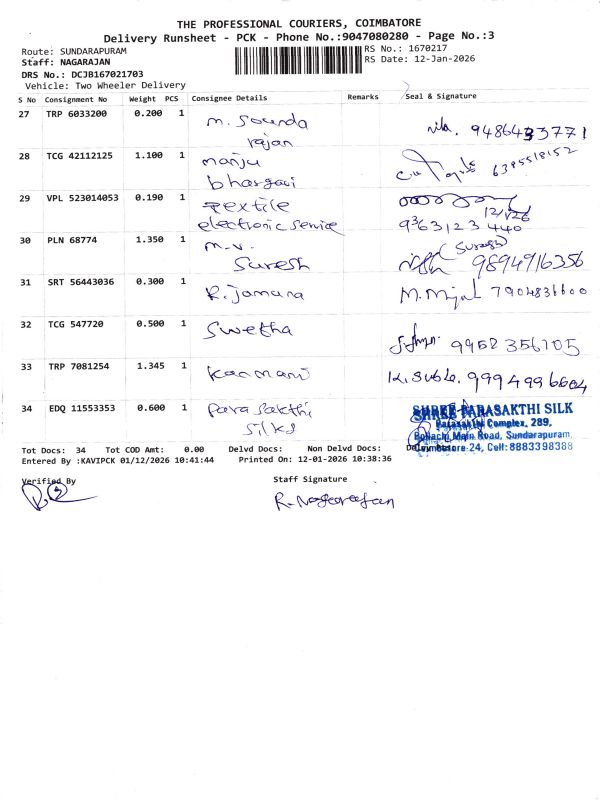 THE PROFESSIONAL COURIERS, COIMBATORE
Delivery Runsheet - PCK - Phone No.:9047080280 - Page No.:3
Route: SUNDARAPURAM RS No.: 1670217
Staff: NAGARAJAN RS Date: 12-Jan-2026
DRS No.: DCJB167021703
Vehicle: Two Wheeler Delivery
S No Consignment No Weight PCS Consignee Details Remarks Seal & Signature
27 TRP 6033200 0.200 1 m. Sounda
rajan
9486433771
28 TCG 42112125 1.100 1 manju
bhargavi
6385518152
29 VPL 523014053 0.190 1 textile
electronic service
12/1/26
9363123440
30 PLN 68774 1.350 1 m.v.
Suresh
(Suresh)
9894916356
31 SRT 56443036 0.300 1 R. jamuna
7904836600
32 TCG 547720 0.500 1 Swetha
9952356705
33 TRP 7081254 1.345 1 kanmani
9994996604
34 EDQ 11553353 0.600 1 Para sakthi
silks
SHREE PARASAKTHI SILK
Parasakthi Complex, 289,
Pollachi Main Road, Sundarapuram,
Coimbatore-24, Cell: 8883398388
Tot Docs: 34 Tot COD Amt: 0.00 Delvd Docs: Non Delvd Docs:
Entered By :KAVIPCK 01/12/2026 10:41:44 Printed On: 12-01-2026 10:38:36
Verified By Staff Signature
R. Nagarajan